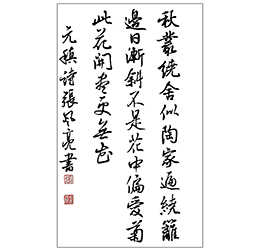 秋叢繞舍似陶家遍繞籬
邊日漸斜不是花中偏愛菊
此花開盡更無花
元稹詩張亮書